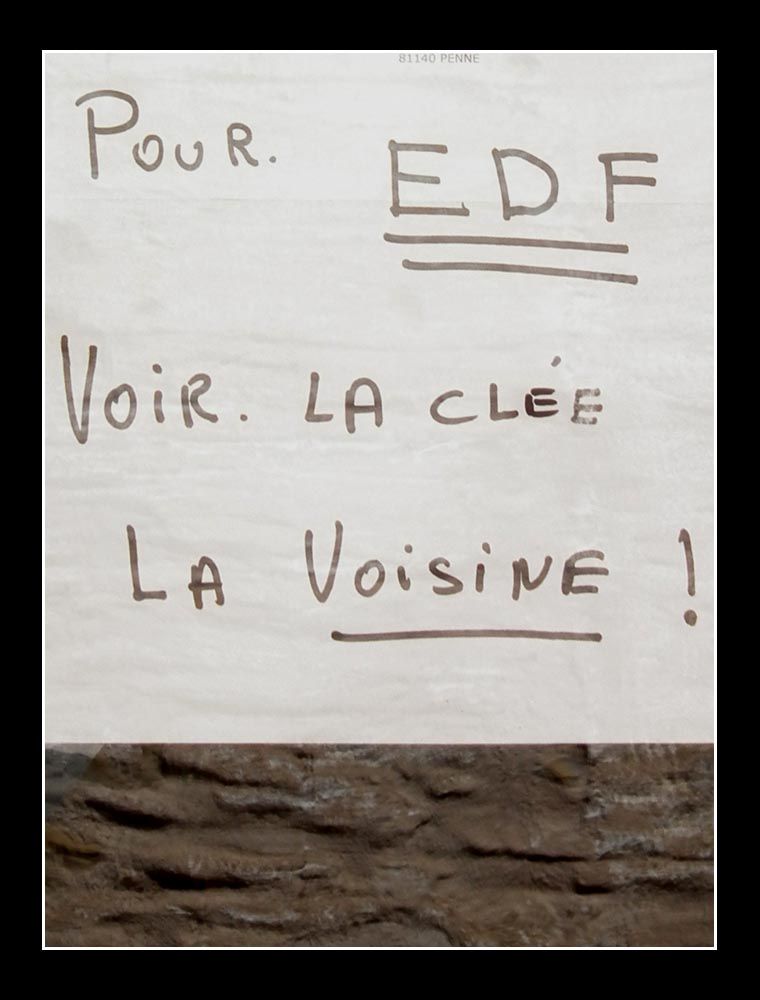 81140 PENNE
POUR. EDF
VOIR. LA CLÉE
LA VOISINE !